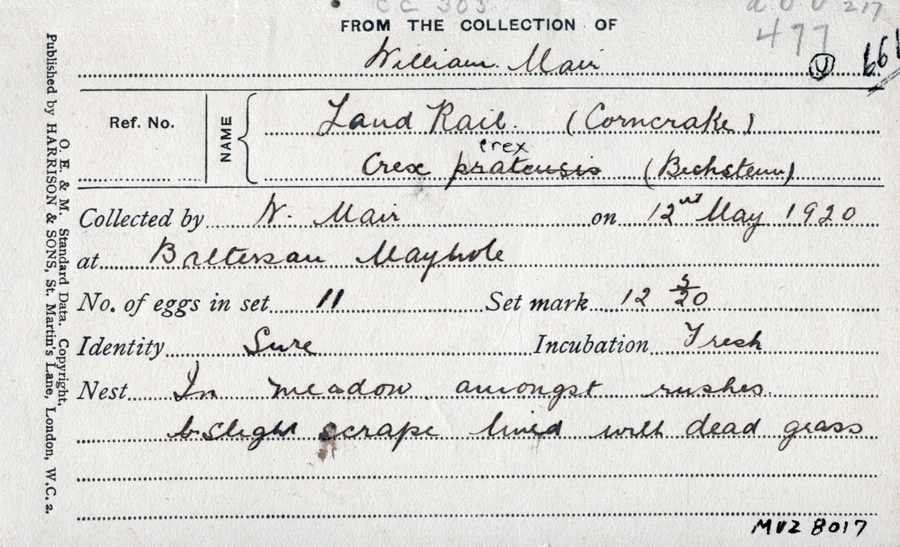 CC 303
217
FROM THE COLLECTION OF
477
William Mair
U 661
Ref. No.
NAME
Land Rail. (Corncrake)
crex
Crex pratensis (Bechstein)
Collected by W. Mair on 12nd May 1920
at Baltersan Mayhole
No. of eggs in set 11 Set mark 12 5/20
Identity Sure Incubation Fresh
Nest In meadow amongst rushes
slight scrape lined with dead grass
MVZ 8017
O. E. & M. Standard Data. Copyright.
Published by HARRISON & SONS, St. Martin's Lane, London, W.C. 2.